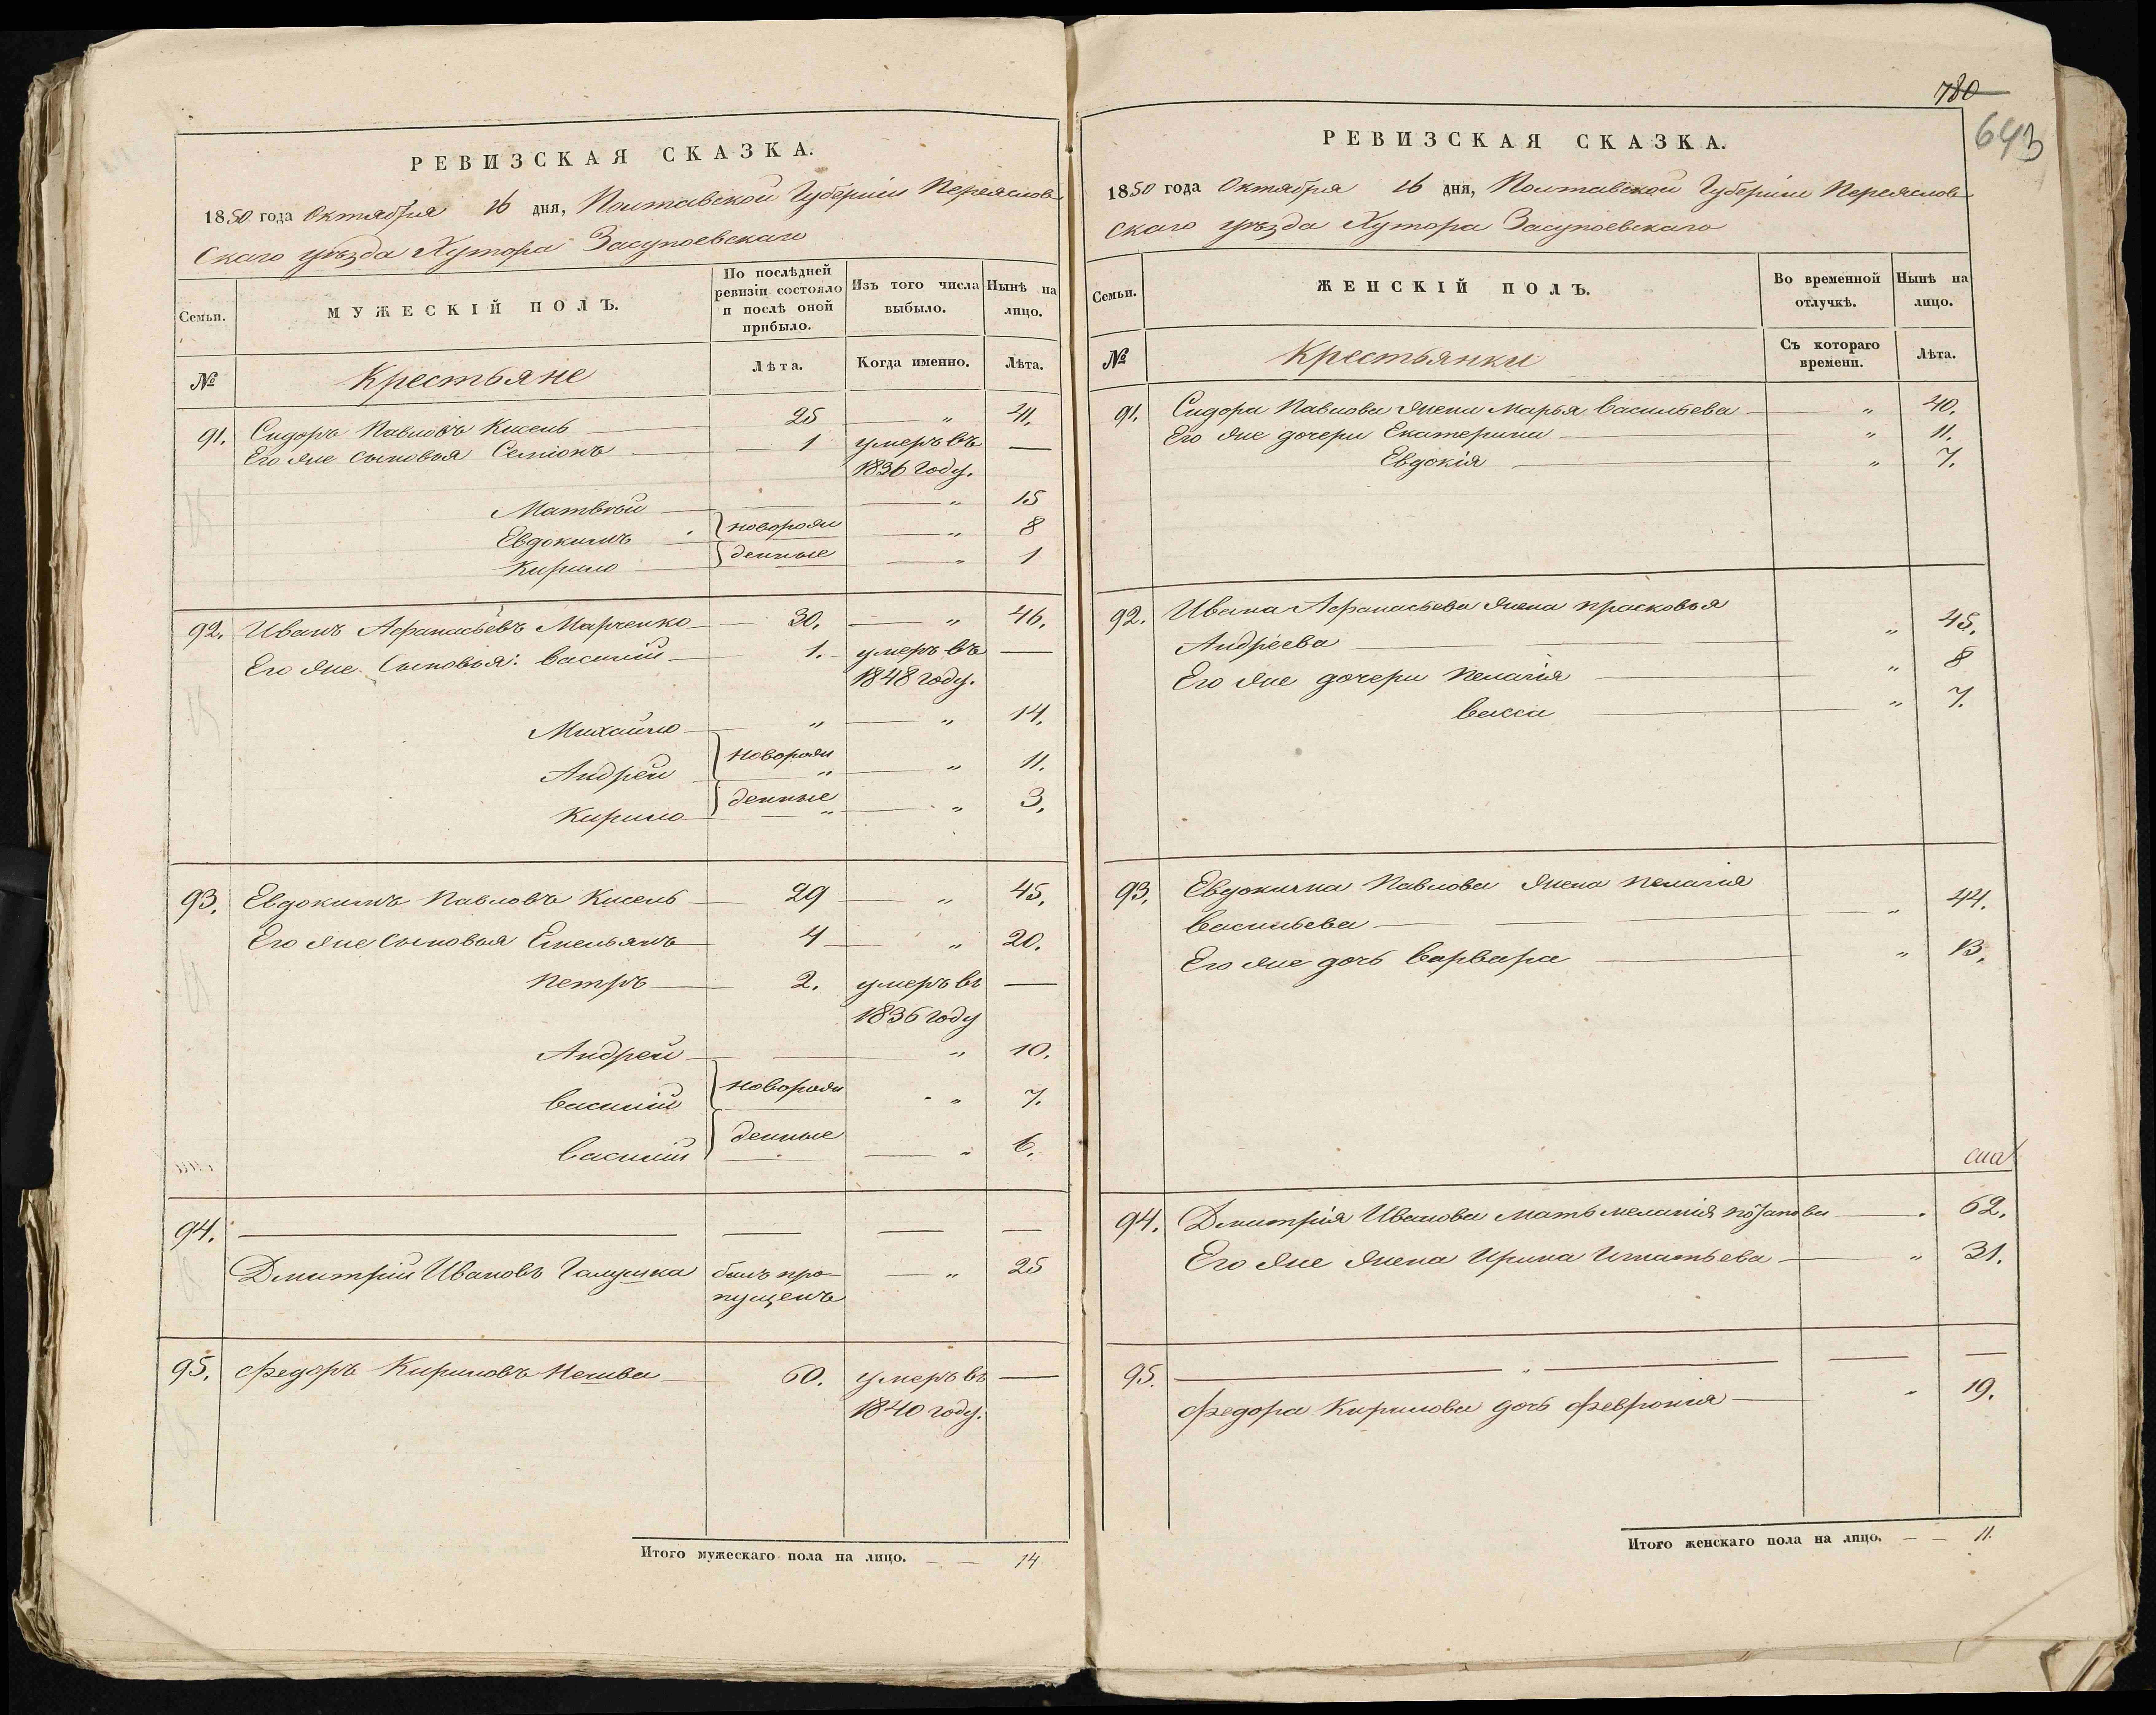 РЕВИЗСКАЯ СКАЗКА.
1850 года Октября 16 дня, Полтавской Губерніи Переяслов-
скаго уѣзда Хутора Засупоевскаго
Семьи.
МУЖЕСКІЙ ПОЛЪ.
По послѣдней ревизіи состояло и послѣ оной прибыло.
Изъ того числа выбыло.
Нынѣ на лицо.
№
Крестьяне
Лѣта.
Когда именно.
Лѣта.
91. Сидоръ Павловъ Кисель 25 „ 41.
Его же сыновья Семіонъ 1 умеръ въ —
1836 году.
Матвѣй „ 15
Евдокимъ новорож „ 8
Кирило денные „ 1
92. Иванъ Афанасьевъ Марченко 30. „ 46.
Его же Сыновья: Василій 1. умеръ въ —
1848 году.
Михайло „ „ 14.
Андрей новорож „ „ 11.
Кирило денные „ „ 3.
93. Евдокимъ Павловъ Кисель 29 „ 45.
Его же Сыновья Емельянъ 4 „ 20.
Петръ 2. умеръ въ —
1836 году
Андрей „ 10.
Василій новорож „ 7.
Василій денные „ 6.
94. — — — —
Дмитрій Ивановъ Галушка былъ про- „ 25
пущенъ
95. Федоръ Кириловъ 60. умеръ въ —
1840 году.
Итого мужескаго пола на лицо. — — 14
780
643
РЕВИЗСКАЯ СКАЗКА.
1850 года Октября 16 дня, Полтавской Губерніи Переяслов-
скаго уѣзда Хутора Засупоевскаго
Семьи.
ЖЕНСКІЙ ПОЛЪ.
Во временной отлучкѣ.
Нынѣ на лицо.
№
Крестьянки
Съ котораго времени.
Лѣта.
91. Сидора Павлова жена Марья Васильева „ 40.
Его же дочери Екатерина „ 11.
Евдокія „ 7.
92. Ивана Афанасьева жена Прасковья
Андреева „ 45.
Его же дочери Пелагія „ 8
Васса „ 7.
93. Евдокима Павлова жена Пелагія
Васильева „ 44.
Его же дочь Варвара „ 13.
94. Дмитрія Иванова мать Меланія 62.
Его же жена Ирина Игнатьева „ 31.
95. — „ — — —
Федора Кирилова дочь Февронія „ 19.
Итого женскаго пола на лицо. — — 11.